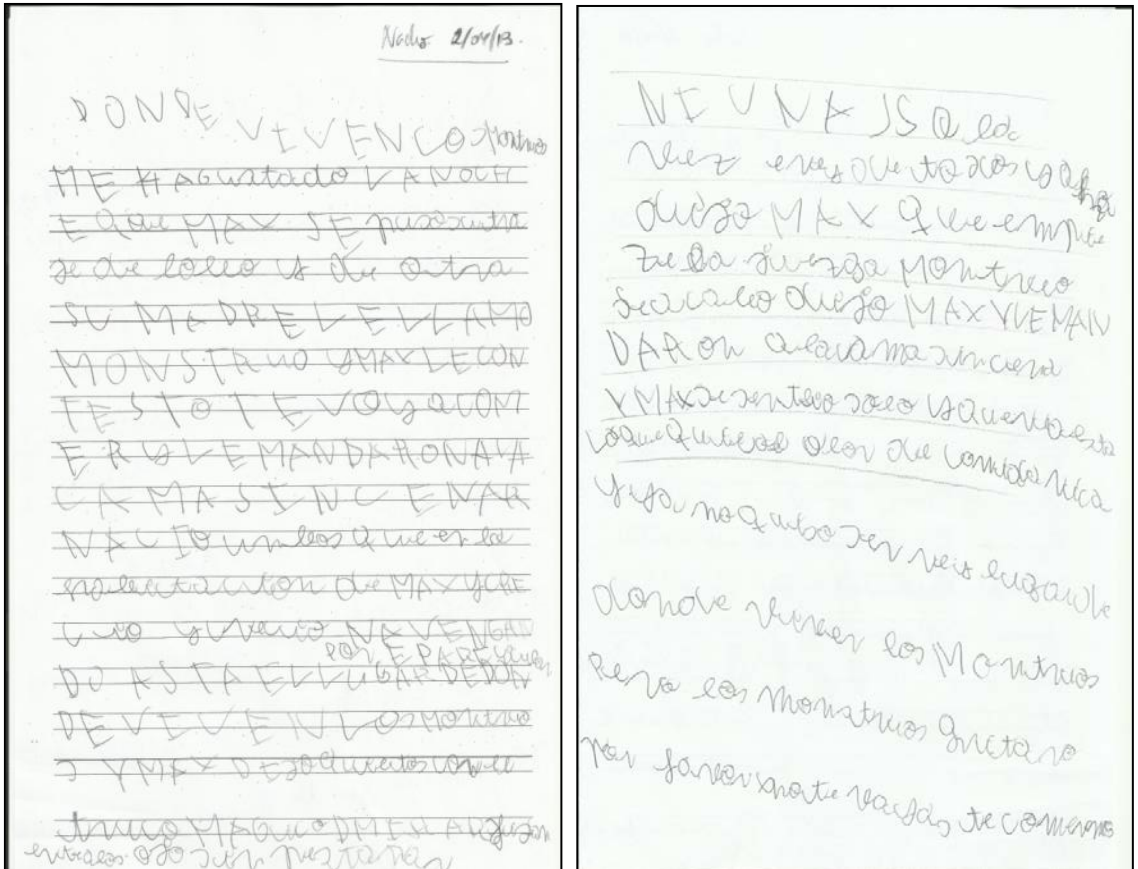 Nacho 2/04/13.
DONDE VIVEN LOS Montruos
ME HA GUStado LA NOCH
E Que MAX SE puso
se de lobo y de otra
SU MADRE LE LLAMO
MONSTRuO YMAX LE CON
TESTO TE VOY a COM
ER Y LE MANDARON A LA
CAMA SIN CENAR
NACIO un bosque en la
de MAX Y CRE
CIO y NAVEGAN
DO ASTA EL LUGAR DE DON
DE VIVEN LOS MONtruo
S Y MAX DIJO quietos con el
truco MAGICO
entre los ojo sin pestañar
NI UNA
vez
dijo MAX que empie
ze la juerga MONtruo
Se acabo dijo MAX Y LE MAN
DARON a la cama sin cena
Y MAX se sentio solo y
olor de comida rica
y ya no quiso ser rei lugar de
donde viven los Montruos
Pero los monstruos gritaro
por favor no te vayas te comemo